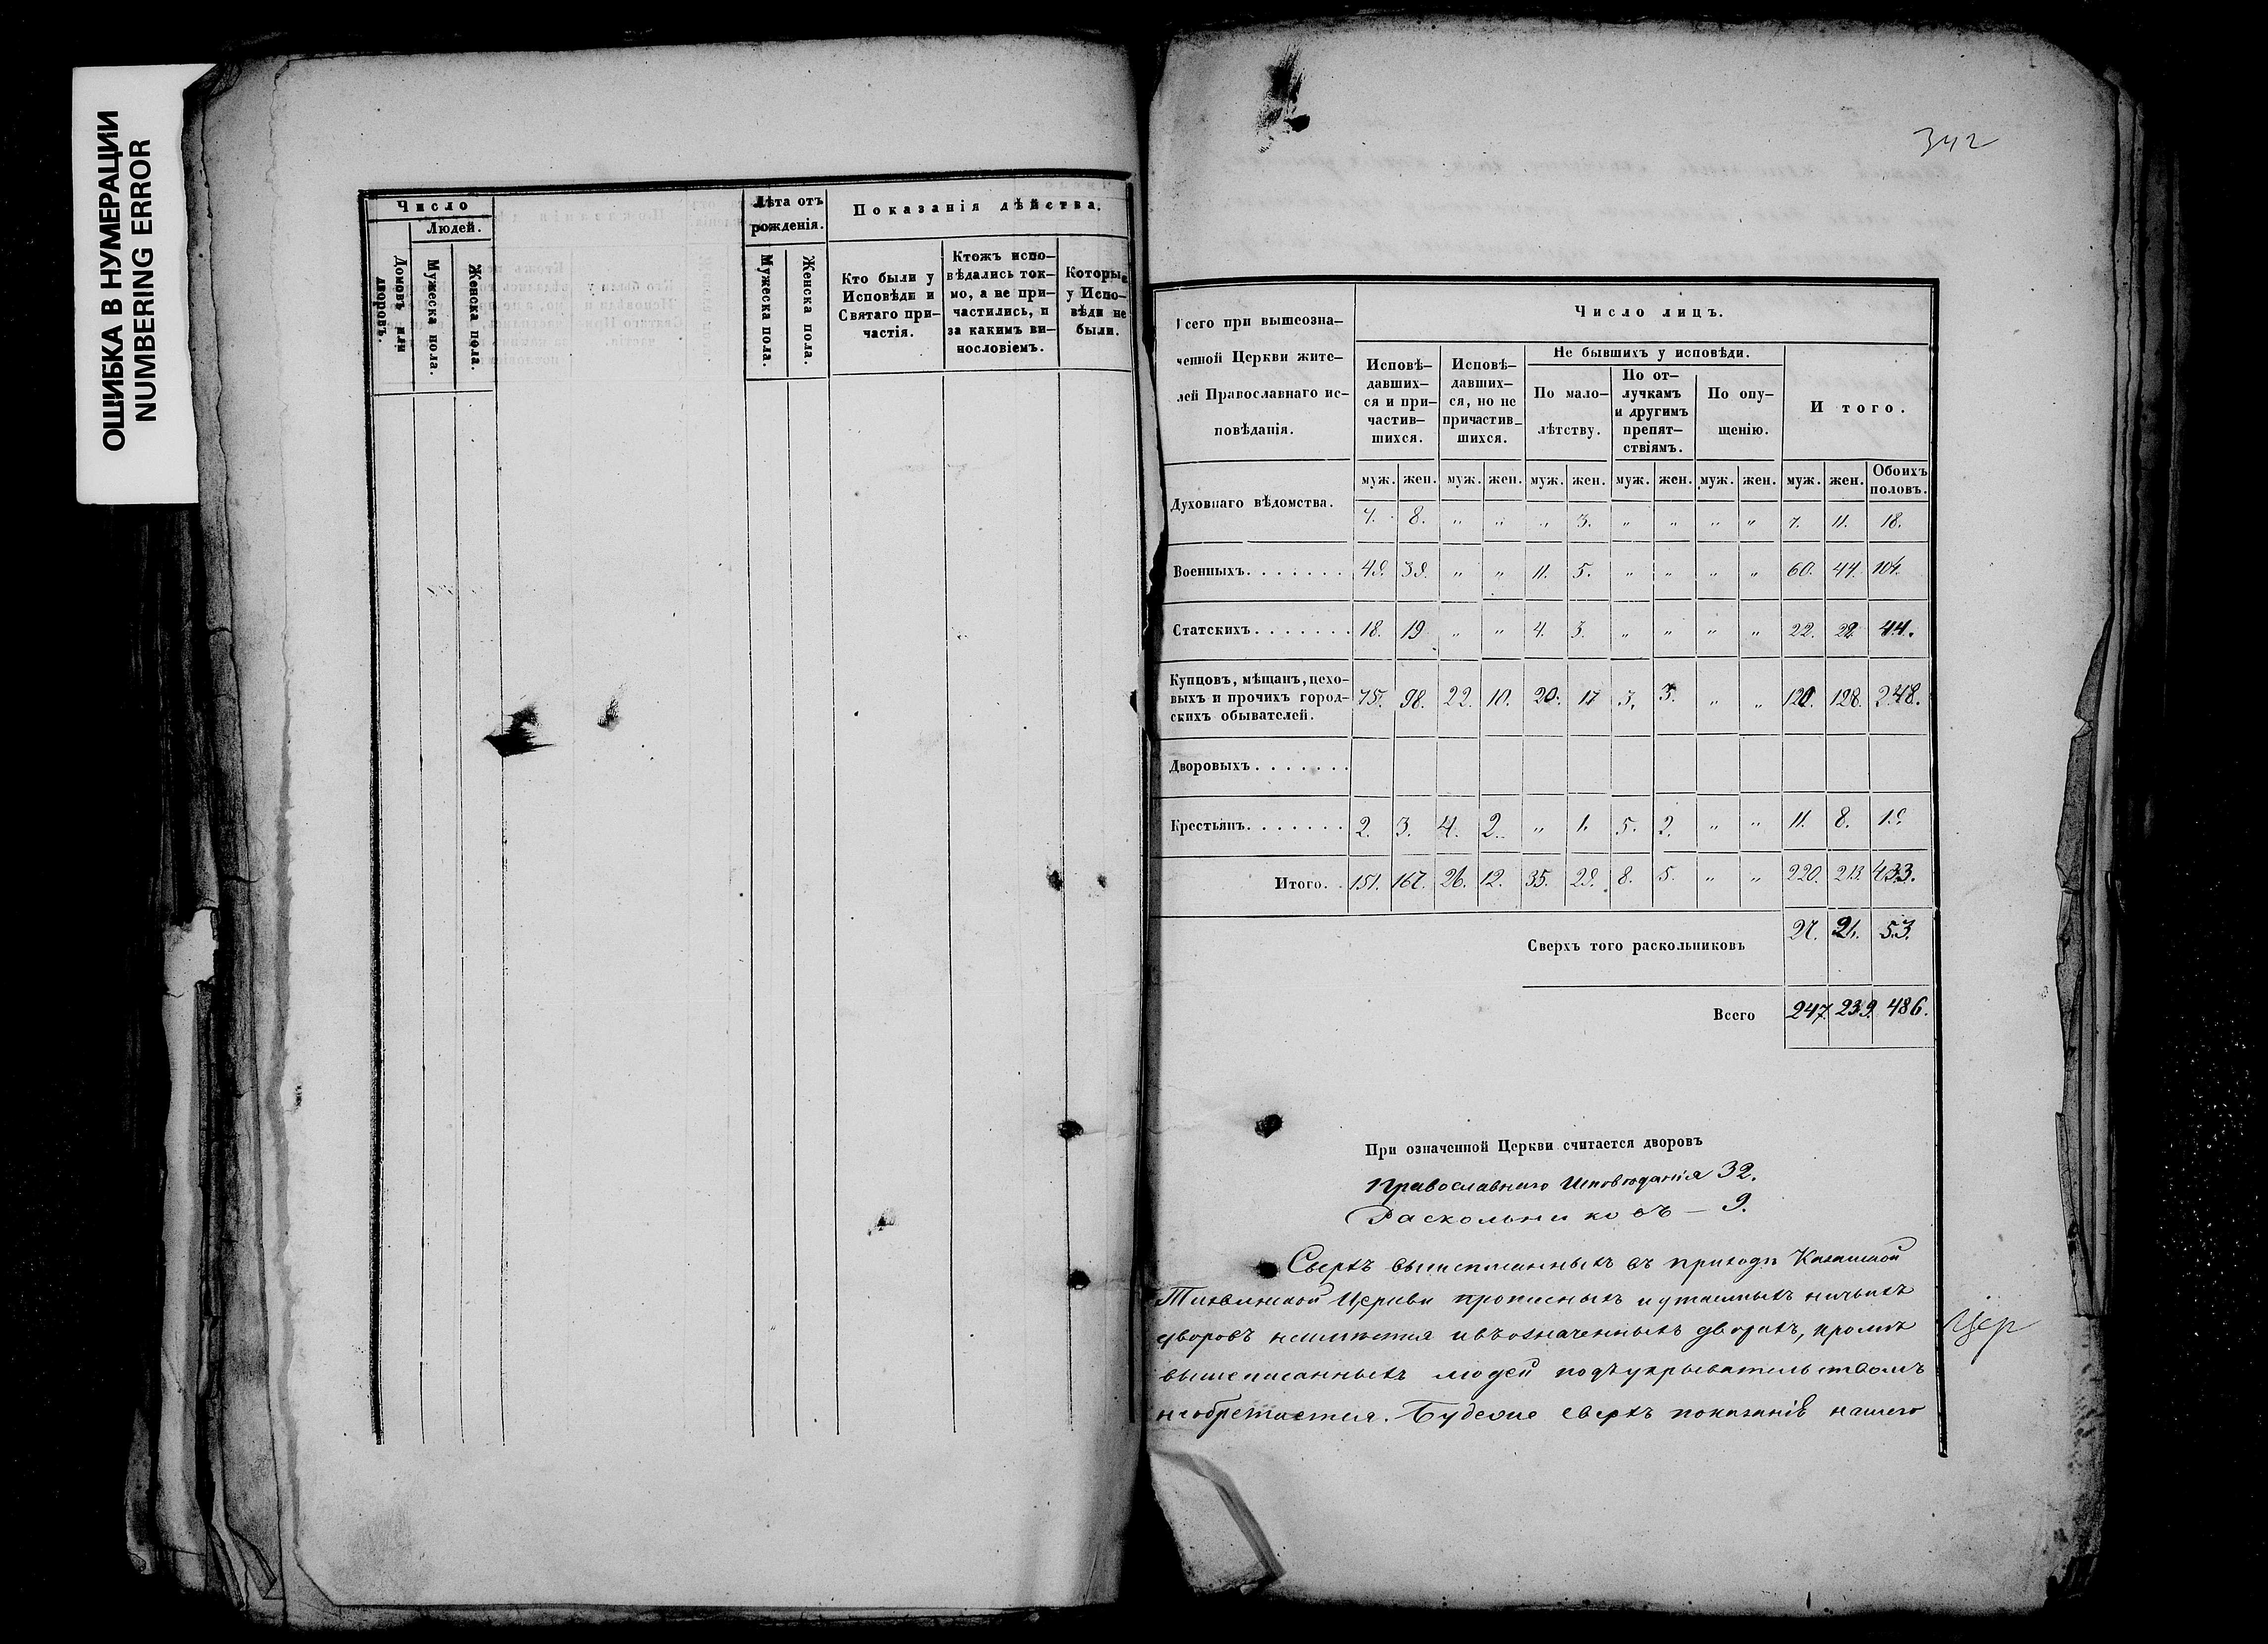 ОШИБКА В НУМЕРАЦИИ
NUMBERING ERROR
Число
Людей.
Домовъ или дворовъ.
Мужеска пола.
Женска пола.
Лѣта отъ рожденія.
Мужеска пола.
Женска пола.
Показанія дѣйства.
Кто были у Исповѣди и Святаго причастія.
Ктожъ исповѣдались токмо, а не причастились, и за какимъ винословіемъ.
Которые у Исповѣди не были.
342
Всего при вышеозна-
ченной Церкви жите-
лей Православнаго ис-
повѣданія.
Число лицъ.
Исповѣ-
давших-
ся и при-
частив-
шихся.
Исповѣ-
давших-
ся, но не
причастив-
шихся.
Не бывшихъ у исповѣди.
По мало-
лѣтству.
По от-
лучкамъ
и другимъ
препят-
ствіямъ.
По опу-
щенію.
И того.
муж. жен. муж. жен. муж. жен. муж. жен. муж. жен. муж. жен. Обоихъ половъ.
Духовнаго вѣдомства. 7. 8. " " " 3. " " " " 7. 11. 18.
Военныхъ. . . . . . . 49. 39. " " 11. 5. " " " " 60. 44. 104.
Статскихъ. . . . . . . 18. 19. " " 4. 3. " " " " 22. 22. 44.
Купцовъ, мѣщанъ, цехо-
выхъ и прочихъ город-
скихъ обывателей. 75. 98. 22. 10. 20. 17 3. 3. " " 120. 128. 248.
Дворовыхъ . . . . . . .
Крестьянъ. . . . . . . 2. 3. 4. 2. " 1. 5. 2. " " 11. 8. 19.
Итого. . 151. 167. 26. 12. 35. 29. 8. 5. " " 220. 213. 433.
Сверхъ того раскольниковъ 27. 26. 53.
Всего 247. 239. 486.
При означенной Церкви считается дворовъ
Православнаго Исповѣданія 32.
Раскольниковъ — 9.
Сверхъ выписанныхъ въ приходѣ Казанской
Тихвинской Церкви прописныхъ и утаенныхъ ничьихъ
дворовъ неимѣется и въ означенныхъ дворахъ, кромѣ
вышеписанныхъ людей подъ укрывательствомъ
необретается. Будеже сверхъ показанія нашего
Цер